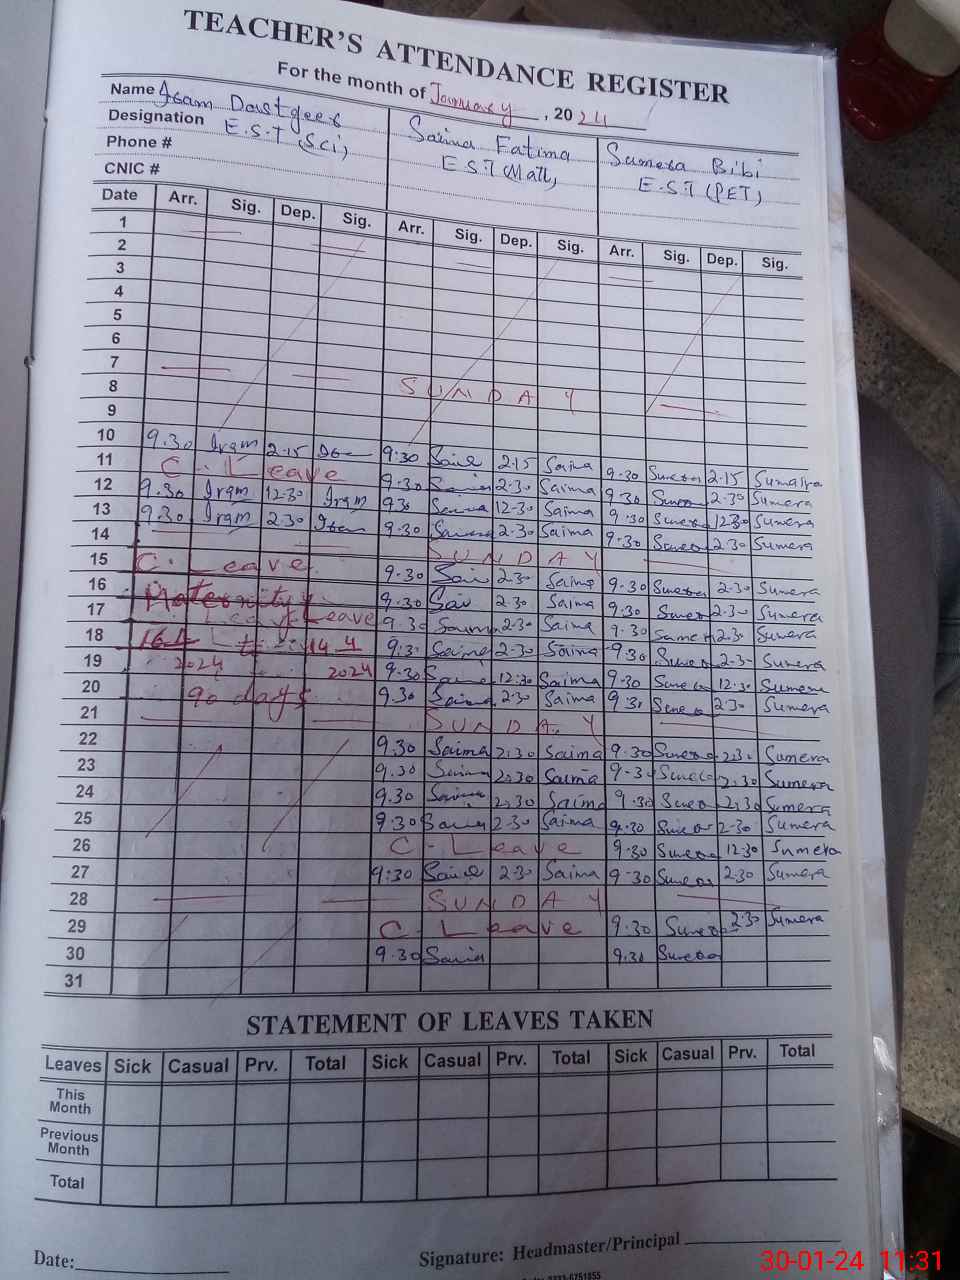 TEACHER'S ATTENDANCE REGISTER
For the month of January, 2024
Name Iram Dastgeer Saima Fatima Sumera Bibi
Designation E.S.T (Sci) E.S.T (Math) E.S.T (PET)
Phone #
CNIC #
Date Arr. Sig. Dep. Sig. Arr. Sig. Dep. Sig. Arr. Sig. Dep. Sig.
1
2
3
4
5
6
7 SUNDAY
8
9
10 9.30 Iram 2.15 9.30 Saima 2.15 Saima 9.30 Sumera 2.15 Sumaira
11 C. Leave 9.30 2.30 Saima 9.30 2.30 Sumera
12 9.30 Iram 12.30 Iram 9.30 12.30 Saima 9.30 Sumera 12.30 Sumera
13 9.30 Iram 2.30 9.30 2.30 Saima 9.30 2.30 Sumera
14 SUNDAY
15 C. Leave 9.30 2.30 Saima 9.30 Sumera 2.30 Sumera
16 Maternity 9.30 Sai 2.30 Saima 9.30 2.30 Sumera
17 Leave 9.30 Saima 2.30 Saima 9.30 2.30 Sumera
18 9.30 Saima 2.30 Saima 9.30 2.30 Sumera
19 2024 2024 9.30 12.30 Saima 9.30 12.30 Sumera
20 90 days 9.30 Saima 2.30 Saima 9.30 2.30 Sumera
21 SUNDAY
22 9.30 Saima 2.30 Saima 9.30 2.30 Sumera
23 9.30 Saima 2.30 Saima 9.30 2.30 Sumera
24 9.30 Saima 2.30 Saima 9.30 2.30 Sumera
25 9.30 2.30 Saima 9.30 2.30 Sumera
26 C. Leave 9.30 12.30 Sumera
27 9.30 2.30 Saima 9.30 2.30 Sumera
28 SUNDAY
29 C. Leave 9.30 2.30 Sumera
30 9.30 Saima 9.30 Sumera
31
STATEMENT OF LEAVES TAKEN
Leaves Sick Casual Prv. Total Sick Casual Prv. Total Sick Casual Prv. Total
This Month
Previous Month
Total
Date: Signature: Headmaster/Principal
30-01-24 11:31